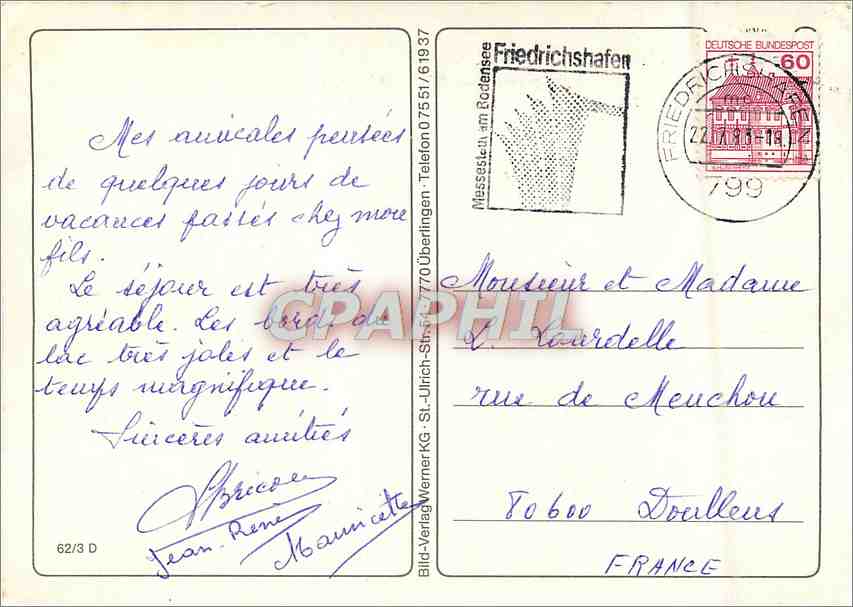 Mes amicales pensées
de quelques jours de
vacances passés chez mon
fils.
Le séjour est très
agréable. Les bords du
lac très jolis et le
temps magnifique.
Sincères amitiés
Jean-René
Mauricette
62/3 D
Bild-Verlag Werner KG · St.-Ulrich-Str. 54 · 7770 Überlingen · Telefon 0 75 51 / 6 19 37
Messestadt am Bodensee
Friedrichshafen
DEUTSCHE BUNDESPOST
60
FRIEDRICHSHAFEN
799
Monsieur et Madame
L. Lourdelle
rue de Menchou
80600 Doullens
FRANCE
CPAPHIL